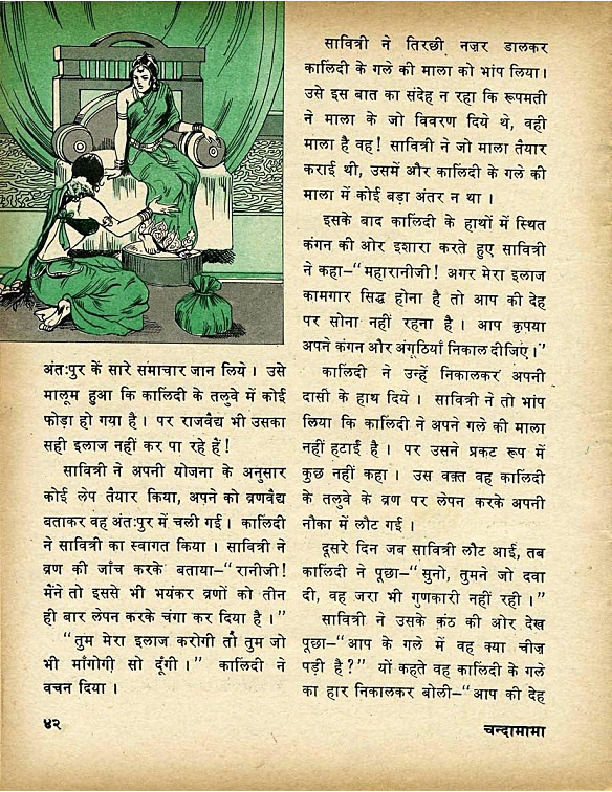 अंतःपुर के सारे समाचार जान लिये। उसे
मालूम हुआ कि कालिंदी के तलुवे में कोई
फोड़ा हो गया है। पर राजवैद्य भी उसका
सही इलाज नहीं कर पा रहे हैं!
सावित्री ने अपनी योजना के अनुसार
कोई लेप तैयार किया, अपने को व्रणवैद्य
बताकर वह अंतःपुर में चली गई। कालिंदी
ने सावित्री का स्वागत किया। सावित्री ने
व्रण की जाँच करके बताया–“रानीजी!
मैंने तो इससे भी भयंकर व्रणों को तीन
ही बार लेपन करके चंगा कर दिया है।”
“तुम मेरा इलाज करोगी तो तुम जो
भी माँगोगी सो दूँगी।” कालिंदी ने
वचन दिया।
सावित्री ने तिरछी नज़र डालकर
कालिंदी के गले की माला को भांप लिया।
उसे इस बात का संदेह न रहा कि रूपमती
ने माला के जो विवरण दिये थे, वही
माला है वह! सावित्री ने जो माला तैयार
कराई थी, उसमें और कालिंदी के गले की
माला में कोई बड़ा अंतर न था।
इसके बाद कालिंदी के हाथों में स्थित
कंगन की ओर इशारा करते हुए सावित्री
ने कहा–“महारानीजी! अगर मेरा इलाज
कामगार सिद्ध होना है तो आप की देह
पर सोना नहीं रहना है। आप कृपया
अपने कंगन और अंगूठियाँ निकाल दीजिए।”
कालिंदी ने उन्हें निकालकर अपनी
दासी के हाथ दिये। सावित्री ने तो भांप
लिया कि कालिंदी ने अपने गले की माला
नहीं हटाई है। पर उसने प्रकट रूप में
कुछ नहीं कहा। उस वक़्त वह कालिंदी
के तलुवे के व्रण पर लेपन करके अपनी
नौका में लौट गई।
दूसरे दिन जब सावित्री लौट आई, तब
कालिंदी ने पूछा–“सुनो, तुमने जो दवा
दी, वह जरा भी गुणकारी नहीं रही।”
सावित्री ने उसके कंठ की ओर देख
पूछा–“आप के गले में वह क्या चीज
पड़ी है?” यों कहते वह कालिंदी के गले
का हार निकालकर बोली–“आप की देह
४२
चन्दामामा